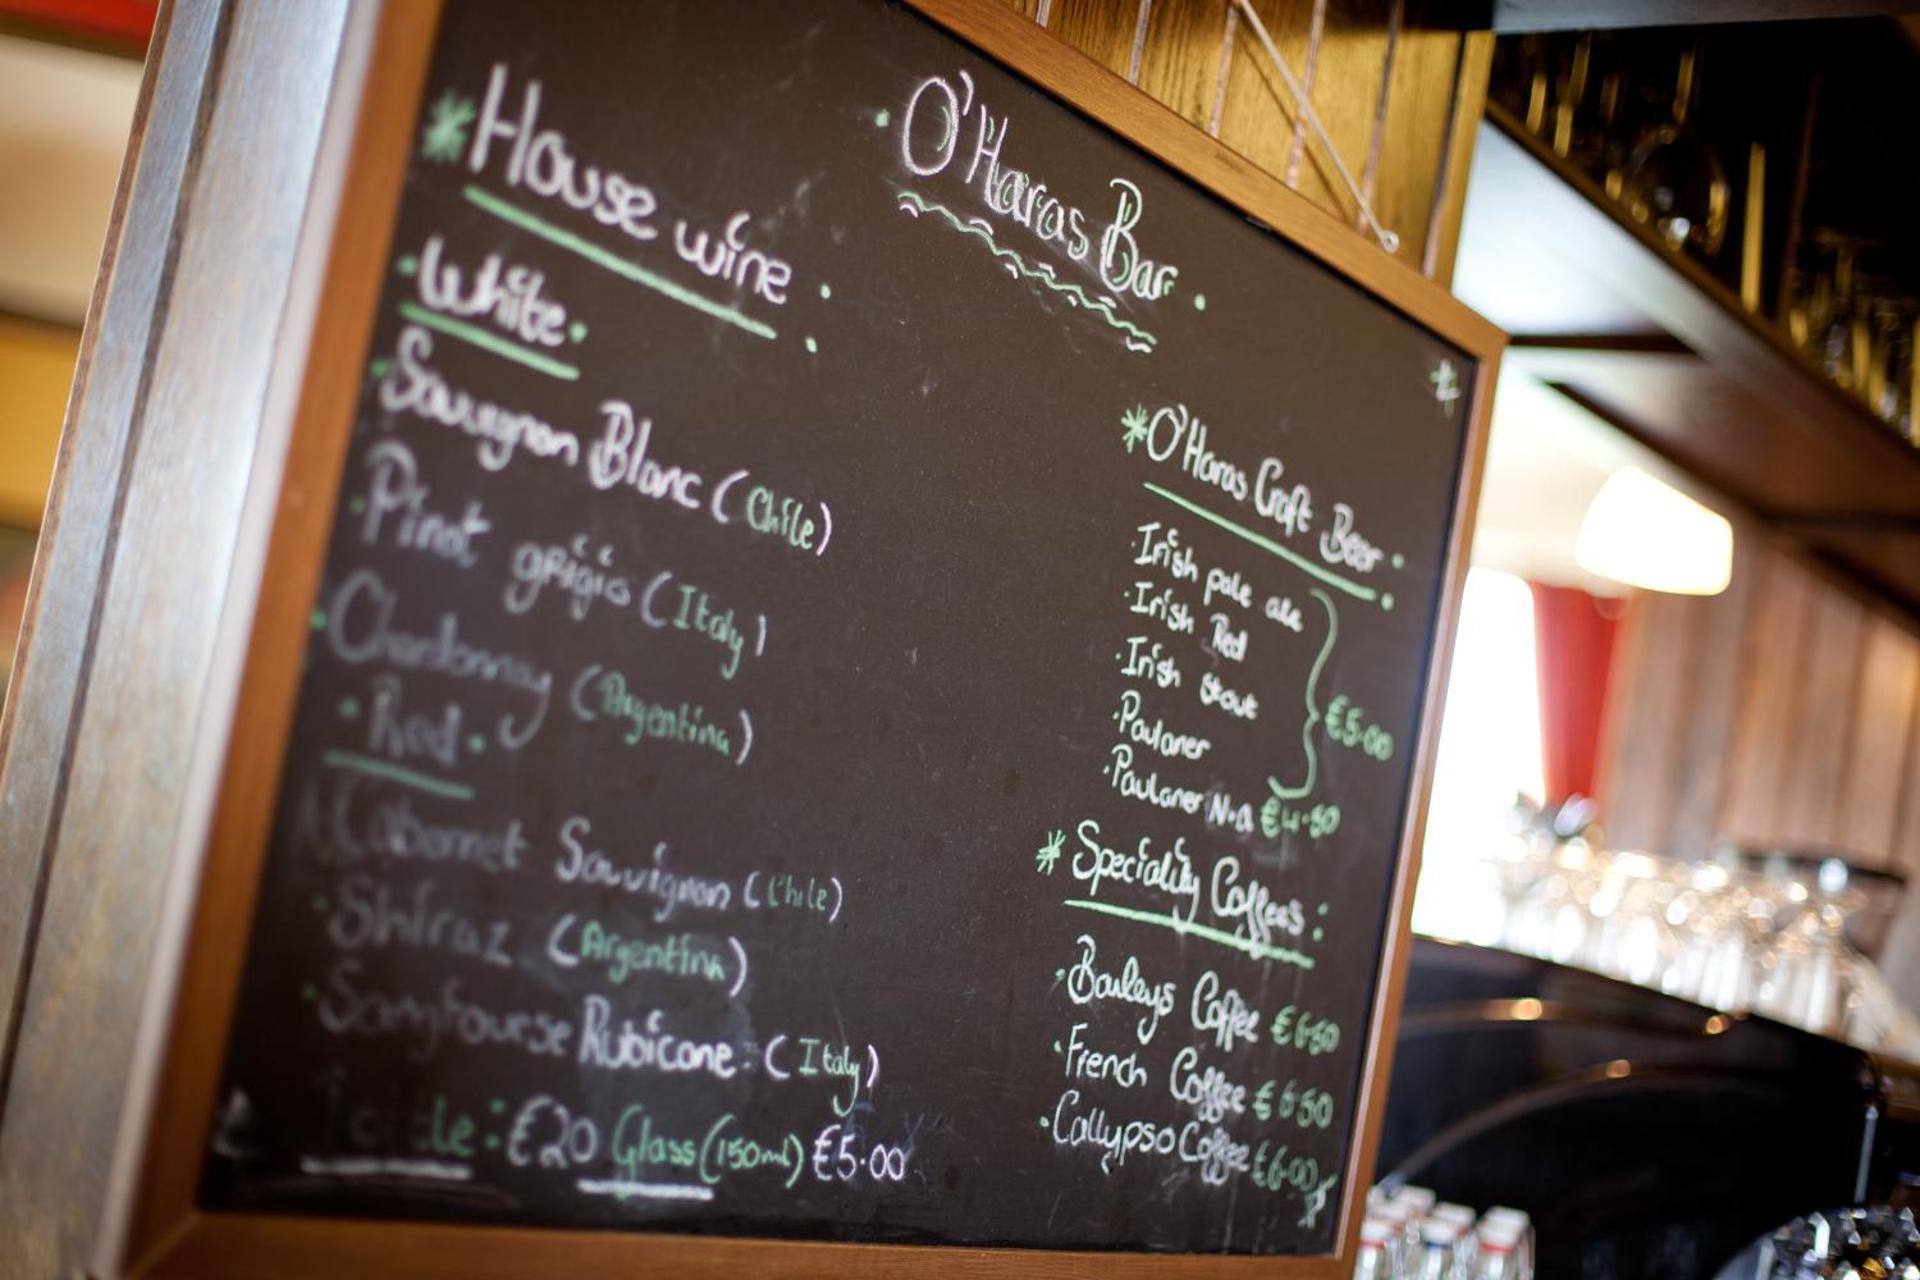 O'Haras Bar
House wine:
White
Sauvignon Blanc (Chile)
Pinot grigio (Italy)
Chardonnay (Argentina)
Red
Cabernet Sauvignon (Chile)
Shiraz (Argentina)
Rubicone: (Italy)
€20 Glass (150ml) €5.00
O'Haras Craft Beer:
Irish pale ale
Irish Red
Irish Stout
Paulaner
€5.00
Paulaner N.a €4.50
Speciality Coffees:
Baileys Coffee €6.50
French Coffee €6.50
Callypso Coffee €6.00